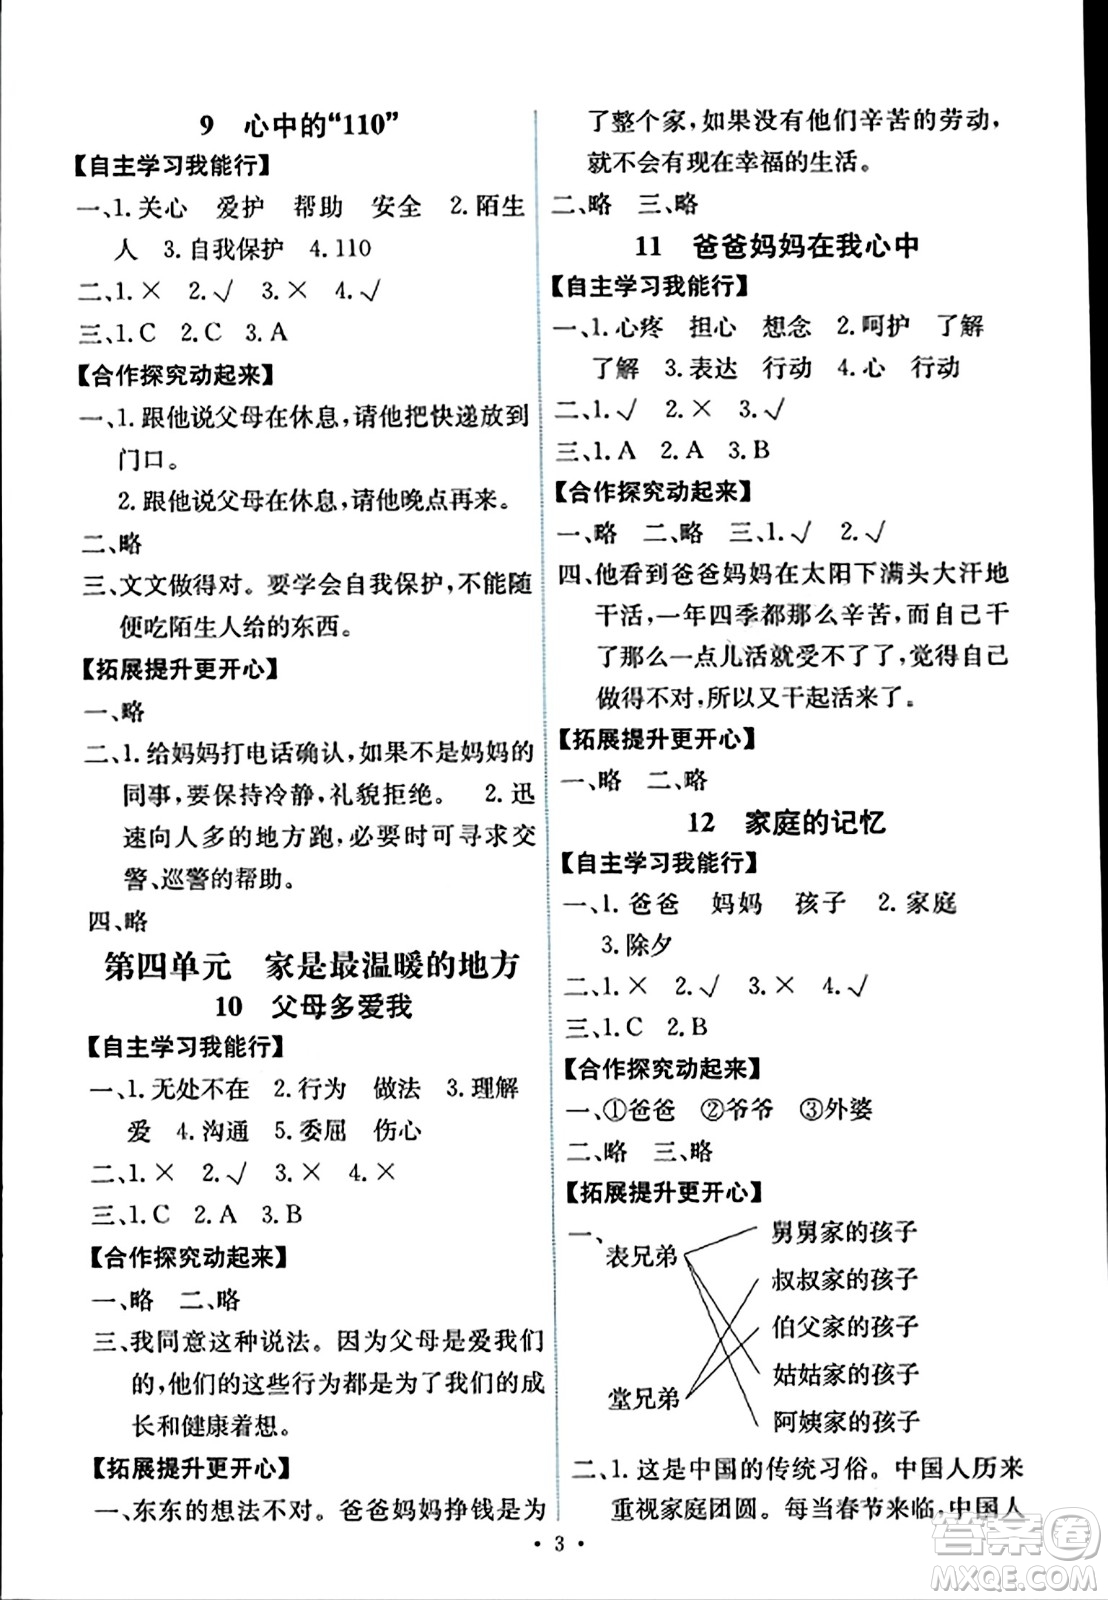 9 心中的“110”
【自主学习我能行】
一、1.关心 爱护 帮助 安全 2.陌生
人 3.自我保护 4.110
二、1.× 2.√ 3.× 4.√
三、1.C 2.C 3.A
【合作探究动起来】
一、1.跟他说父母在休息,请他把快递放到
门口。
2.跟他说父母在休息,请他晚点再来。
二、略
三、文文做得对。要学会自我保护,不能随
便吃陌生人给的东西。
【拓展提升更开心】
一、略
二、1.给妈妈打电话确认,如果不是妈妈的
同事,要保持冷静,礼貌拒绝。 2.迅
速向人多的地方跑,必要时可寻求交
警、巡警的帮助。
四、略
第四单元 家是最温暖的地方
10 父母多爱我
【自主学习我能行】
一、1.无处不在 2.行为 做法 3.理解
爱 4.沟通 5.委屈 伤心
二、1.× 2.√ 3.× 4.×
三、1.C 2.A 3.B
【合作探究动起来】
一、略 二、略
三、我同意这种说法。因为父母是爱我们
的,他们的这些行为都是为了我们的成
长和健康着想。
【拓展提升更开心】
一、东东的想法不对。爸爸妈妈挣钱是为
了整个家,如果没有他们辛苦的劳动,
就不会有现在幸福的生活。
二、略 三、略
11 爸爸妈妈在我心中
【自主学习我能行】
一、1.心疼 担心 想念 2.呵护 了解
了解 3.表达 行动 4.心 行动
二、1.√ 2.× 3.√
三、1.A 2.A 3.B
【合作探究动起来】
一、略 二、略 三、1.√ 2.√
四、他看到爸爸妈妈在太阳下满头大汗地
干活,一年四季都那么辛苦,而自己干
了那么一点儿活就受不了了,觉得自己
做得不对,所以又干起活来了。
【拓展提升更开心】
一、略 二、略
12 家庭的记忆
【自主学习我能行】
一、1.爸爸 妈妈 孩子 2.家庭
3.除夕
二、1.× 2.√ 3.× 4.√
三、1.C 2.B
【合作探究动起来】
一、①爸爸 ②爷爷 ③外婆
二、略 三、略
【拓展提升更开心】
一、
表兄弟
堂兄弟
舅舅家的孩子
叔叔家的孩子
伯父家的孩子
姑姑家的孩子
阿姨家的孩子
二、1.这是中国的传统习俗。中国人历来
重视家庭团圆。每当春节来临,中国人
· 3 ·
答案圈
MXQE.COM